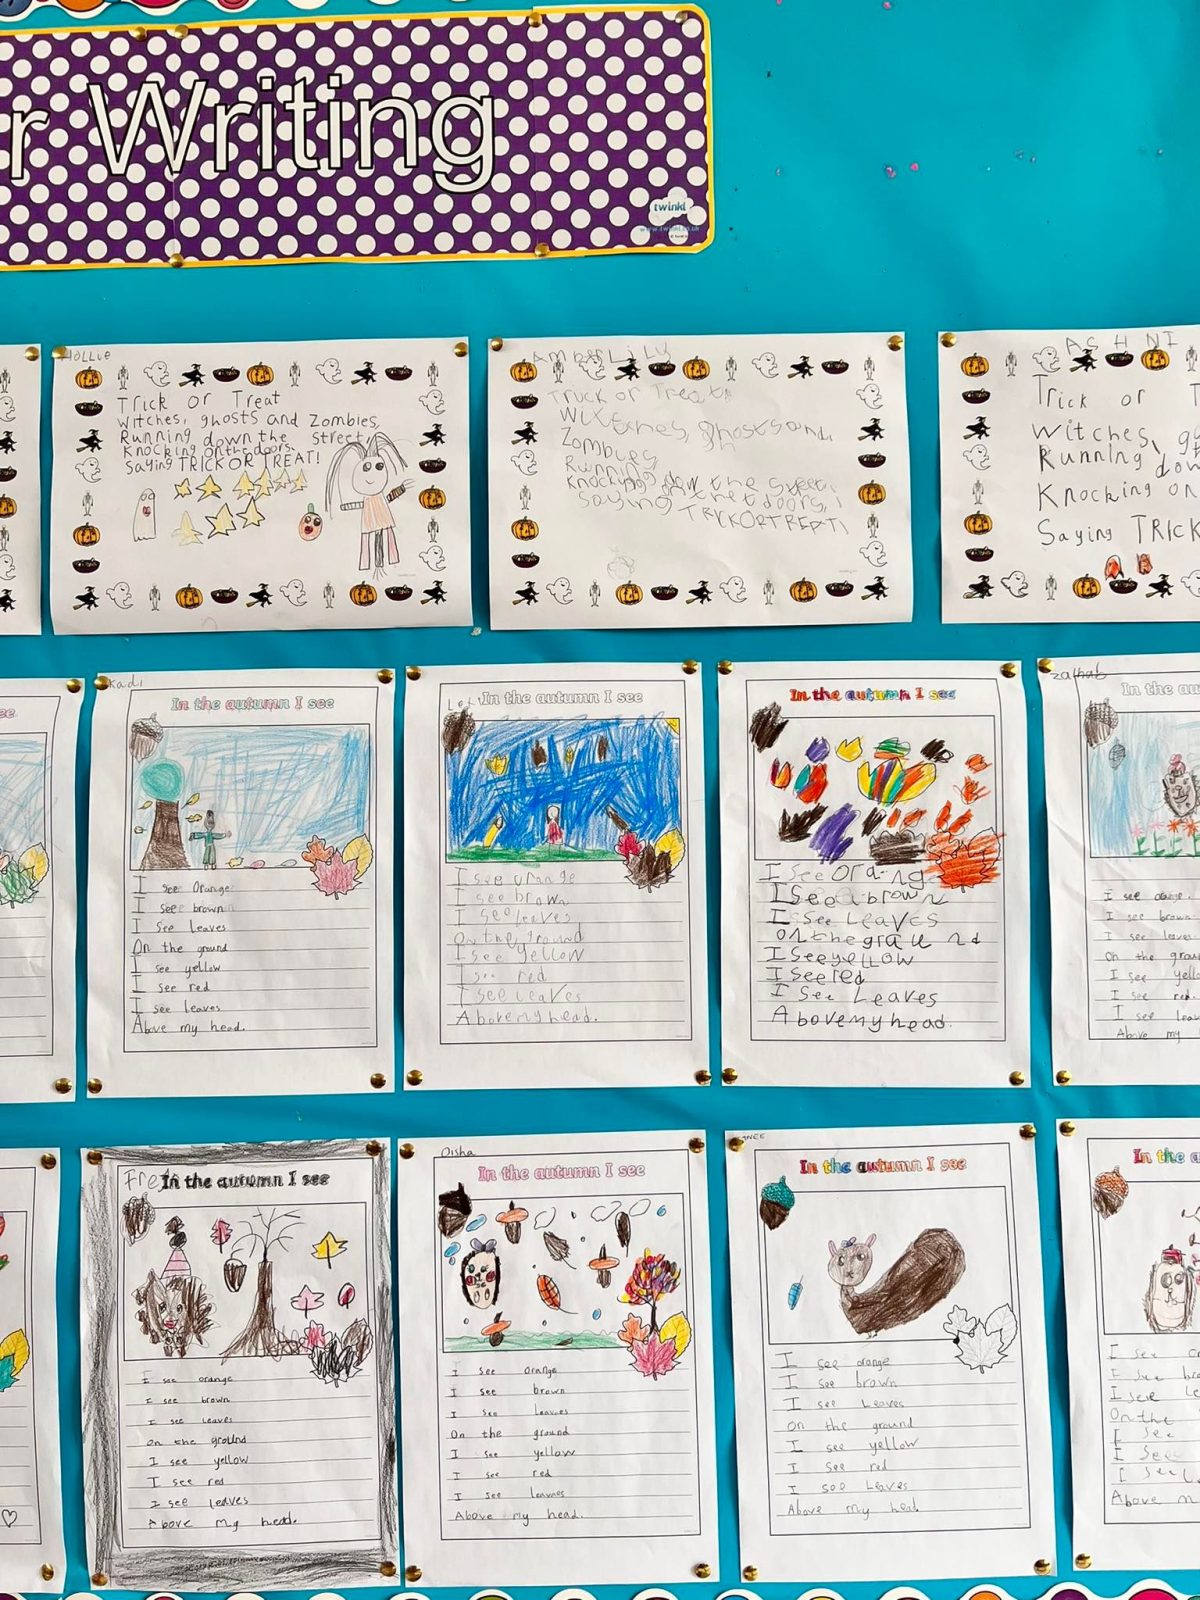 r Writing
twinkl
www.twinkl.co.uk
Hollie
Trick or Treat
Witches, ghosts and Zombies,
Running down the street,
Knocking on the doors.
Saying TRICK OR TREAT!
Amber Lily
Truck or Treat
Witches, ghosts and,
Zombies
Running down the street,
Knocking
Saying
TRICK OR TREAT!
ASHNI
Trick or T
Witches, gh
Running dow
Knocking on
Saying TRICK
see
Kadi
In the autumn I see
I see Orange
I see brown
I see leaves
On the ground
I see yellow
I see red
I see leaves
Above my head.
In the autumn I see
I see orange
I see brown
I see leaves
On the ground
I see yellow
I see red
I see leaves
Above my head.
In the autumn I see
I see orang
I see a brown
I see Leaves
on the grau nd
I see yellow
I see red
I see Leaves
Above my head.
zainab
In the au
I see orange.
I see brown
I see leaves
On the grou
I see yello
I see red.
I see leav
Above my
Fre
In the autumn I see
I see orange
I see brown
I see leaves
on the ground
I see yellow
I see red
I see leaves
Above my head.
Oisha
In the autumn I see
I see orange
I see brown
I see leaves
On the ground
I see yellow
I see red
I see leaves
Above my head.
In the autumn I see
I see orange
I see brown
I see Leaves
on the ground
I see yellow
I see red
I see Leaves
Above my head
In the a
I see or
I see bro
I see le
On the
I see
I see
I see L
Above m